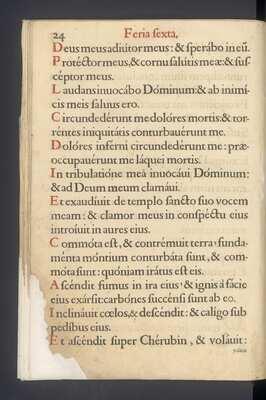 24 Feria sexta,
Deus meus adiutor meus: & sperábo in eũ.
Protéctor meus, & cornu salútis meæ: & sus/
céptor meus.
Laudans inuocábo Dóminum: & ab inimí/
cis meis saluus ero.
Circundedérunt me dolóres mortis: & tor/
réntes iniquitátis conturbauérunt me.
Dolóres inférni circundedérunt me: præ/
occupauérunt me láquei mortis.
In tribulatióne meà inuocáui Dóminum:
& ad Deum meum clamáui.
Et exaudíuit de templo sancto suo vocem
meam: & clamor meus in conspéctu eius
introíuit in aures eius.
Commóta est, & contrémuit terra: funda/
ménta móntium conturbáta sunt, & com/
móta sunt: quóniam irátus est eis.
Ascéndit fumus in ira eius: & ignis à fácie
eius exársit: carbónes succénsi sunt ab eo.
Inclináuit cœlos, & descéndit: & calígo sub
pédibus eius.
Et ascéndit super Chérubin, & voláuit: